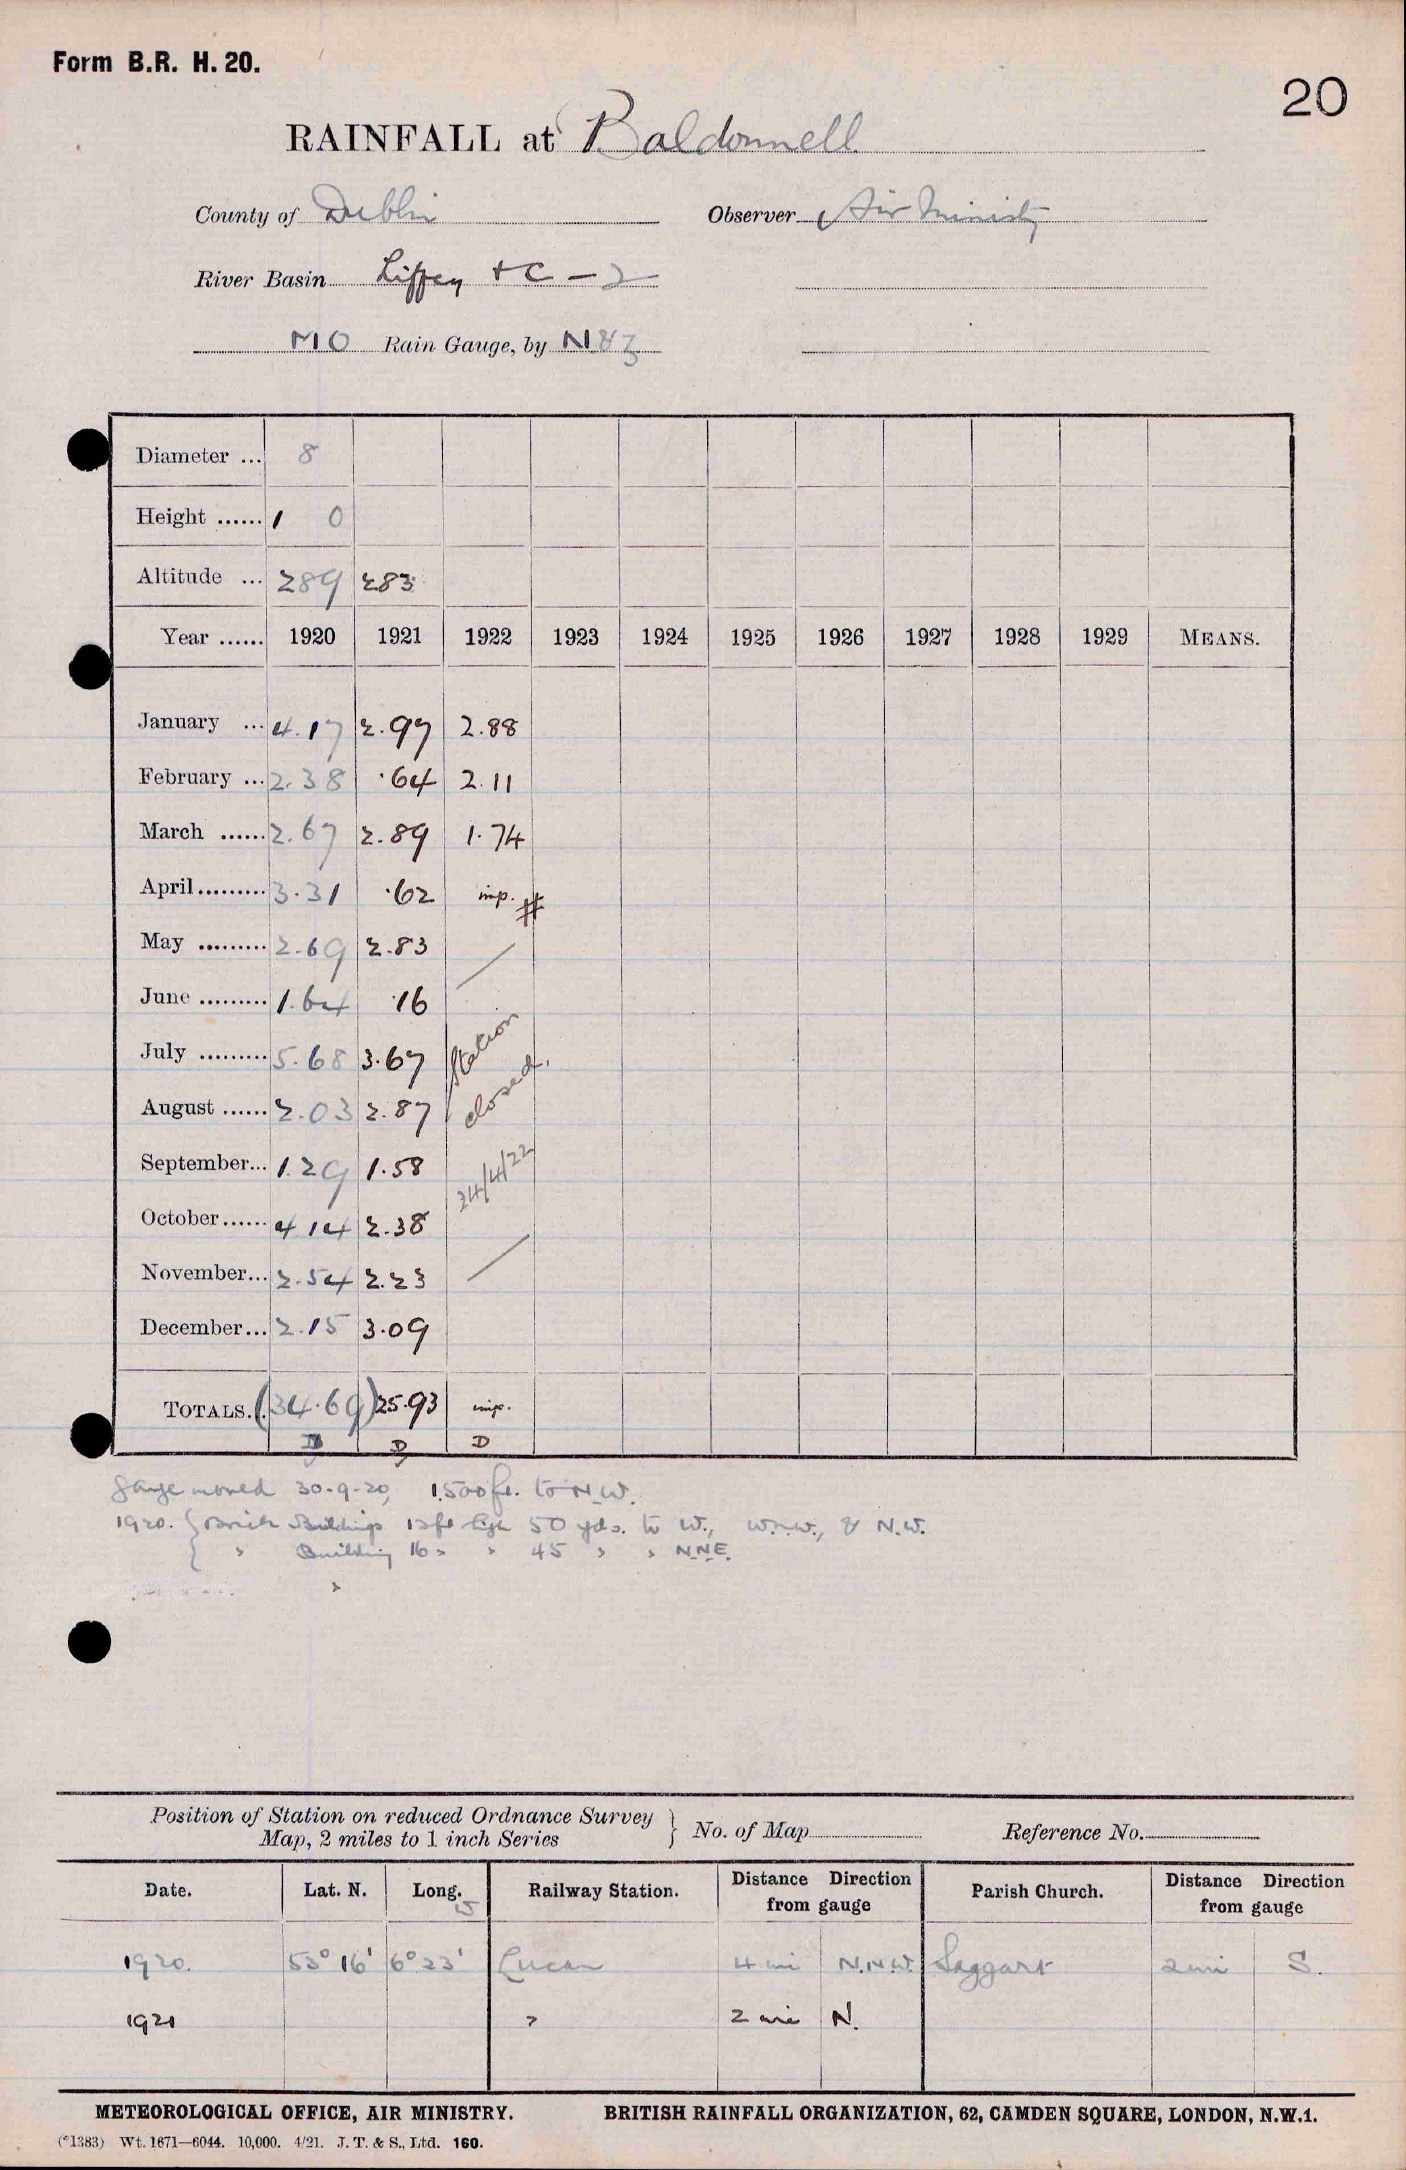 Form B.R. H. 20.
20
RAINFALL at Baldonnell
County of Dublin Observer Air Ministry
River Basin Liffey +C - 2
MO Rain Gauge, by N&Z
Diameter ... 8
Height ...... 1 0
Altitude ... 289 283
Year ...... 1920 1921 1922 1923 1924 1925 1926 1927 1928 1929 MEANS.
January ... 4.17 2.97 2.88
February ... 2.38 .64 2.11
March ...... 2.67 2.89 1.74
April ......... 3.31 .62 imp. #
May ......... 2.69 2.83
June ......... 1.64 .16
July ......... 5.68 3.67 Station
August ...... 2.03 2.87 closed.
September... 1.29 1.58 24/4/22
October...... 4 14 2.38
November... 2.54 2.23
December... 2.15 3.09
TOTALS. (34.69) 25.93 imp.
D D D
Gauge moved 30-9-20, 1,500 ft. to N.W.
1920. { Brick Buildings 12ft high 50 yds. to W., W.N.W., & N.W.
{ " Building 16 " " 45 " " N.N.E.
"
Position of Station on reduced Ordnance Survey
Map, 2 miles to 1 inch Series } No. of Map Reference No.
Date. Lat. N. Long. W Railway Station. Distance Direction from gauge Parish Church. Distance Direction from gauge
1920. 53° 16' 6° 23' Lucan 4 mi N.N.W. Saggart 2 mi S.
1921 " 2 mi N.
METEOROLOGICAL OFFICE, AIR MINISTRY. BRITISH RAINFALL ORGANIZATION, 62, CAMDEN SQUARE, LONDON, N.W.1.
(*1383) Wt. 1671—6044. 10,000. 4/21. J. T. & S., Ltd. 160.